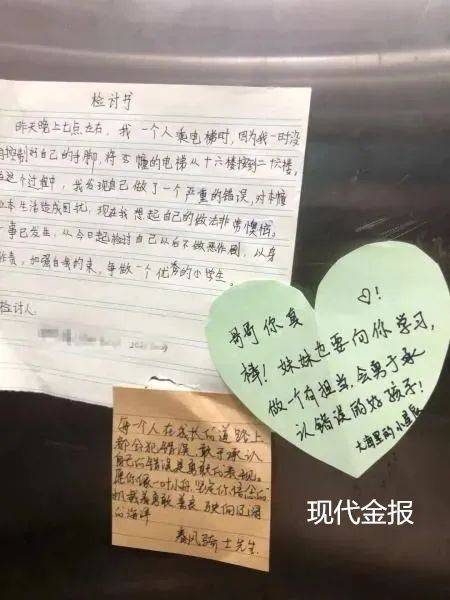 检讨书
昨天晚上七点左右，我一个人乘电梯时，因为我一时没
控制好自己的手脚，将本幢的电梯从十六楼按到二十六楼。
在这个过程中，我发现自己做了一个严重的错误，对本幢
业主生活造成困扰，现在我想起自己的做法非常懊悔。
事已发生，从今日起检讨自己以后不做恶作剧，以身
作责，加强自我约束，争做一个优秀的小学生。
检讨人
♡!
哥哥你真
棒！妹妹也要向你学习，
做一个有担当，会勇于承
认错误的好孩子！
大海里的小星辰
每一个人在成长的道路上
都会犯错误，敢于承认
自己的错误是勇敢的表现。
愿你像一叶小舟，坚定你信念的
帆载着勇敢善良驶向辽阔
的海洋
春风骑士先生
现代金报